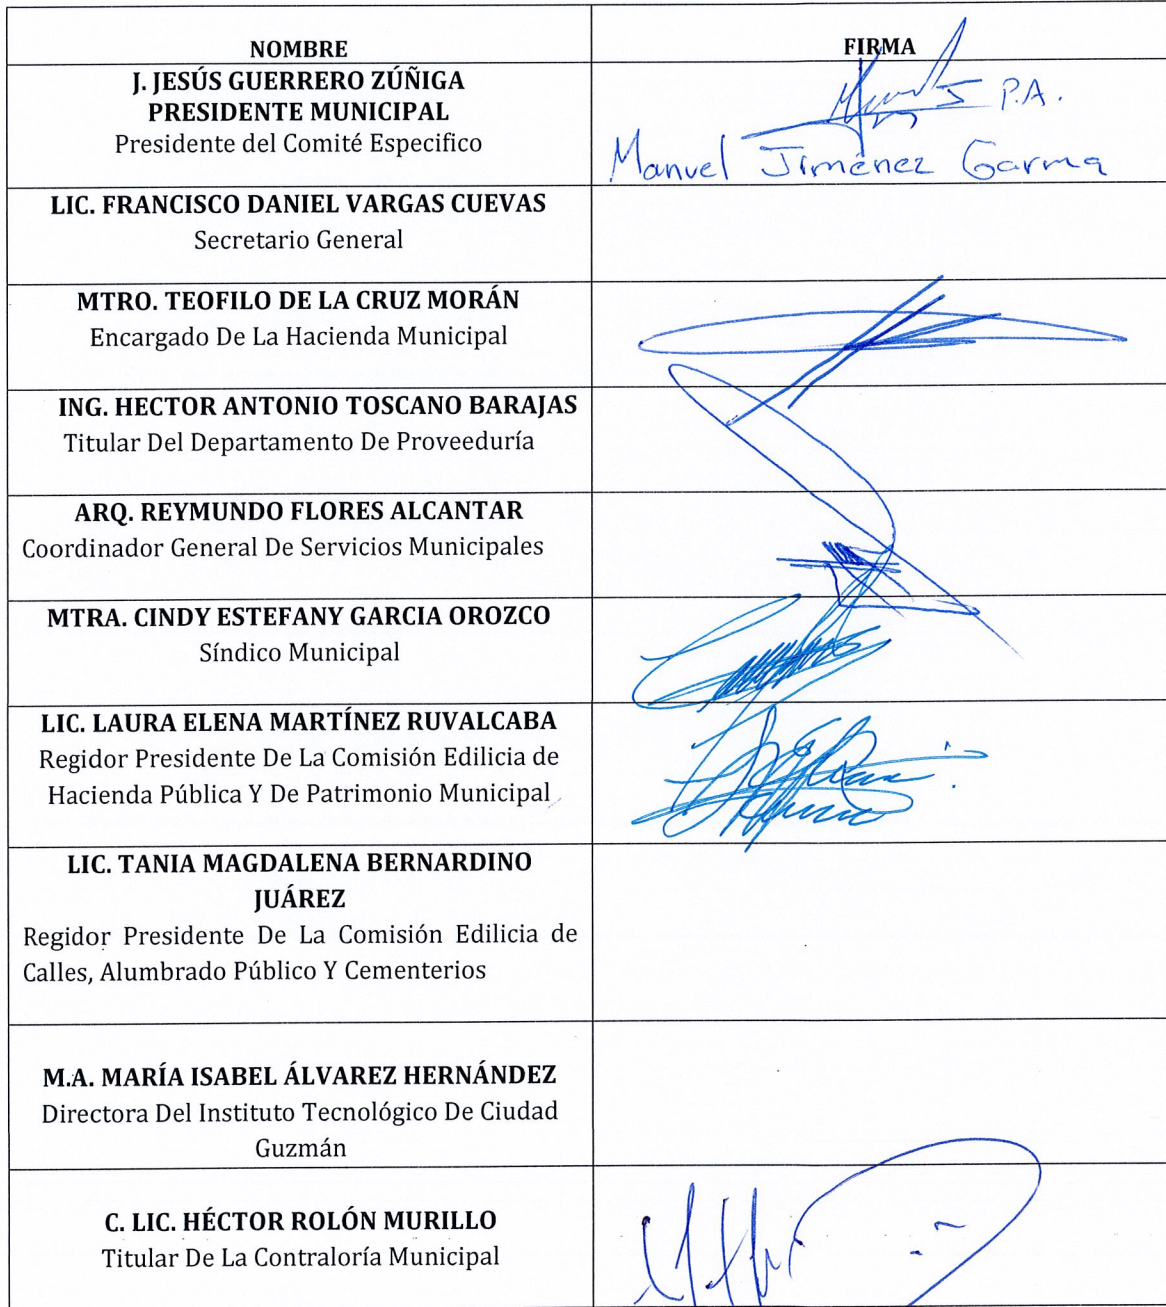 NOMBRE
FIRMA
J. JESÚS GUERRERO ZÚÑIGA
PRESIDENTE MUNICIPAL
Presidente del Comité Especifico
P.A.
Manuel Jiménez Garma
LIC. FRANCISCO DANIEL VARGAS CUEVAS
Secretario General
MTRO. TEOFILO DE LA CRUZ MORÁN
Encargado De La Hacienda Municipal
ING. HECTOR ANTONIO TOSCANO BARAJAS
Titular Del Departamento De Proveeduría
ARQ. REYMUNDO FLORES ALCANTAR
Coordinador General De Servicios Municipales
MTRA. CINDY ESTEFANY GARCIA OROZCO
Síndico Municipal
LIC. LAURA ELENA MARTÍNEZ RUVALCABA
Regidor Presidente De La Comisión Edilicia de
Hacienda Pública Y De Patrimonio Municipal
LIC. TANIA MAGDALENA BERNARDINO
JUÁREZ
Regidor Presidente De La Comisión Edilicia de
Calles, Alumbrado Público Y Cementerios
M.A. MARÍA ISABEL ÁLVAREZ HERNÁNDEZ
Directora Del Instituto Tecnológico De Ciudad
Guzmán
C. LIC. HÉCTOR ROLÓN MURILLO
Titular De La Contraloría Municipal